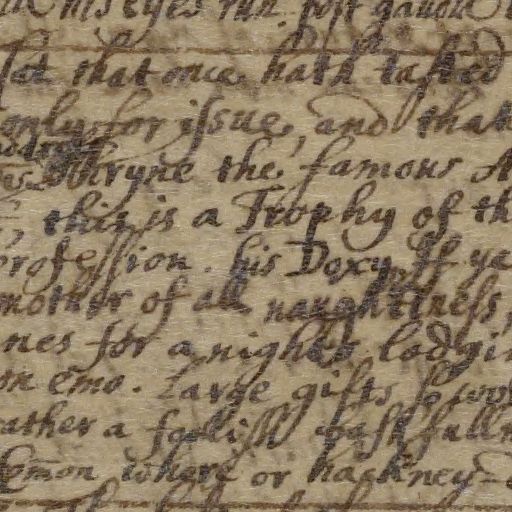 his eyes run. post
that once hath tasted
only for issue, and that
Phryne the famous
, this is a Trophy of th
profession. his Doxy. If ye
mother of all naughtiness,
nes for a nights lodgin
on emo. Large gifts so wo
rather a foolish bashfull
Comon where or hackney-